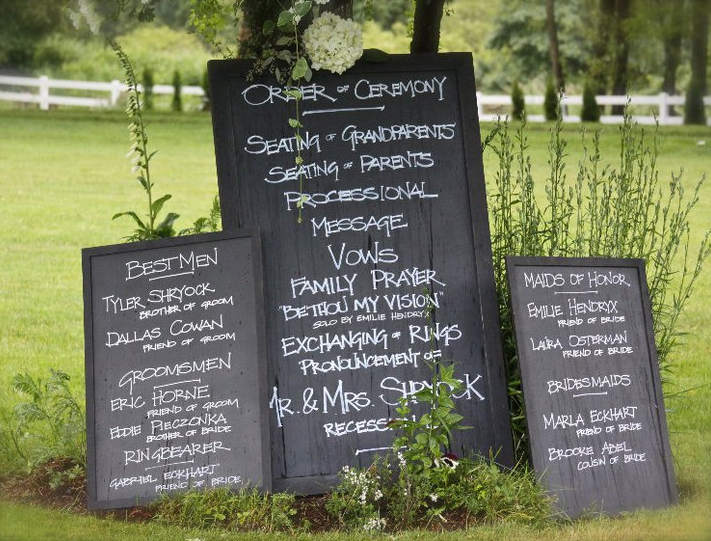 BEST MEN
TYLER SHRYOCK
BROTHER OF GROOM
DALLAS COWAN
FRIEND OF GROOM
GROOMSMEN
ERIC HORNE
FRIEND OF GROOM
EDDIE PIECZONKA
BROTHER OF BRIDE
RINGBEARER
GABRIEL ECKHART
FRIEND OF BRIDE
ORDER OF CEREMONY
SEATING OF GRANDPARENTS
SEATING OF PARENTS
PROCESSIONAL
MESSAGE
VOWS
FAMILY PRAYER
"BE THOU MY VISION"
SOLO BY EMILIE HENDRYX
EXCHANGING OF RINGS
PRONOUNCEMENT OF
MR. & MRS. SHRYOCK
RECESSIONAL
MAIDS OF HONOR
EMILIE HENDRYX
FRIEND OF BRIDE
LAURA OSTERMAN
FRIEND OF BRIDE
BRIDESMAIDS
MARLA ECKHART
FRIEND OF BRIDE
BROOKE ABEL
COUSIN OF BRIDE